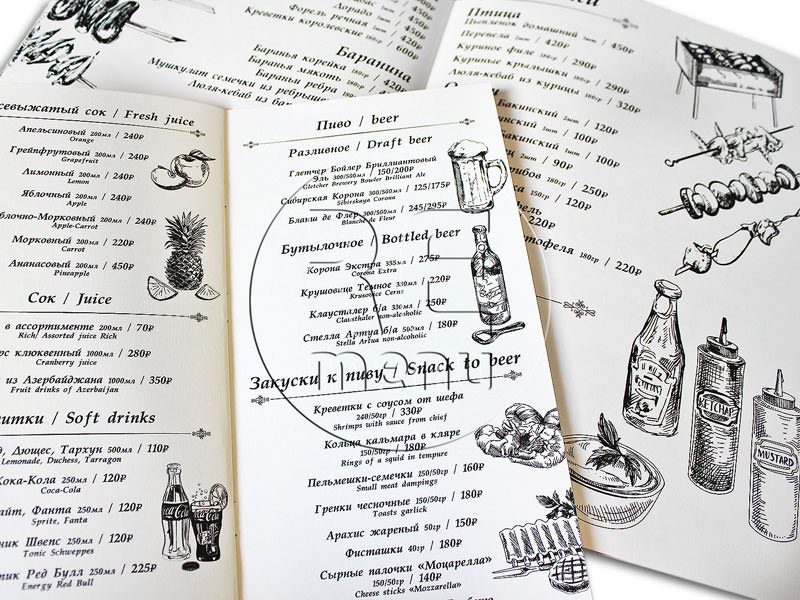 Дорадо
Форель речная 1шт / 450₽
Креветки королевские 180гр / 600₽
Баранина
Баранья корейка 180гр / 420₽
Баранья мякоть
Баранья ребра
Мушкулат семечки из ребрышек
Люля-кебаб из
Птица
Цыпленок домашний 1шт / 450₽
Перепела 2шт / 420₽
Куриное филе 180гр / 290₽
Куриные крылышки 180гр / 290₽
Люля-кебаб из курицы 180гр / 320₽
Бакинский 2шт / 120₽
Бакинский 1шт / 100₽
1шт / 100₽
2шт / 90₽
180гр / 250₽
150гр / 120₽
220₽
180гр / 220₽
KETCHUP
MUSTARD
сок / Fresh juice
Апельсиновый 200мл / 240₽
Orange
Грейпфрутовый 200мл / 240₽
Grapefruit
Лимонный 200мл / 240₽
Lemon
Яблочный 200мл / 240₽
Apple
блочно-Морковный 200мл / 240₽
Apple-Carrot
Морковный 200мл / 220₽
Carrot
Ананасовый 200мл / 450₽
Pineapple
Сок / Juice
в ассортименте 200мл / 70₽
Rich/ Assorted juice Rich
рс клюквенный 1000мл / 280₽
Cranberry juice
из Азербайджана 1000мл / 350₽
Fruit drinks of Azerbaijan
итки / Soft drinks
д, Дюшес, Тархун 500мл / 110₽
Lemonade, Duchess, Tarragon
Кока-Кола 250мл / 120₽
Coca-Cola
айт, Фанта 250мл / 120₽
Sprite, Fanta
ник Швепс 250мл / 120₽
Tonic Schweppes
тик Ред Булл 250мл / 225₽
Energy Red Bull
Пиво / beer
Разливное / Draft beer
Глетчер Бойлер Бриллиантовый
Эль 300/500мл / 150/200₽
Gletcher Brewery Bowler Brilliant Ale
Сибирская Корона 300/500мл / 125/175₽
Sibirskaya Corona
Бланш де Флёр 300/500мл / 245/295₽
Blanche de Fleur
Бутылочное / Bottled beer
Корона Экстра 355мл / 275₽
Corona Extra
Крушовице Темное 330мл / 220₽
Krusovice Cerne
Клаусталер б/а 330мл / 250₽
Clausthaler non-alcoholic
Стелла Артуа б/а 500мл / 180₽
Stella Artua non-alcoholic
menu
Закуски к пиву / Snack to beer
Креветки с соусом от шефа
240/50гр / 330₽
Shrimps with sauce from chief
Кольца кальмара в кляре
150/50гр / 180₽
Rings of a squid in tempure
Пельмешки-семечки 150/50гр / 160₽
Small meat dampings
Гренки чесночные 150/50гр / 180₽
Toasts garlick
Арахис жареный 50гр / 150₽
Фисташки 40гр / 180₽
Сырные палочки «Моцарелла»
150/50гр / 140₽
Cheese sticks «Mozzarella»